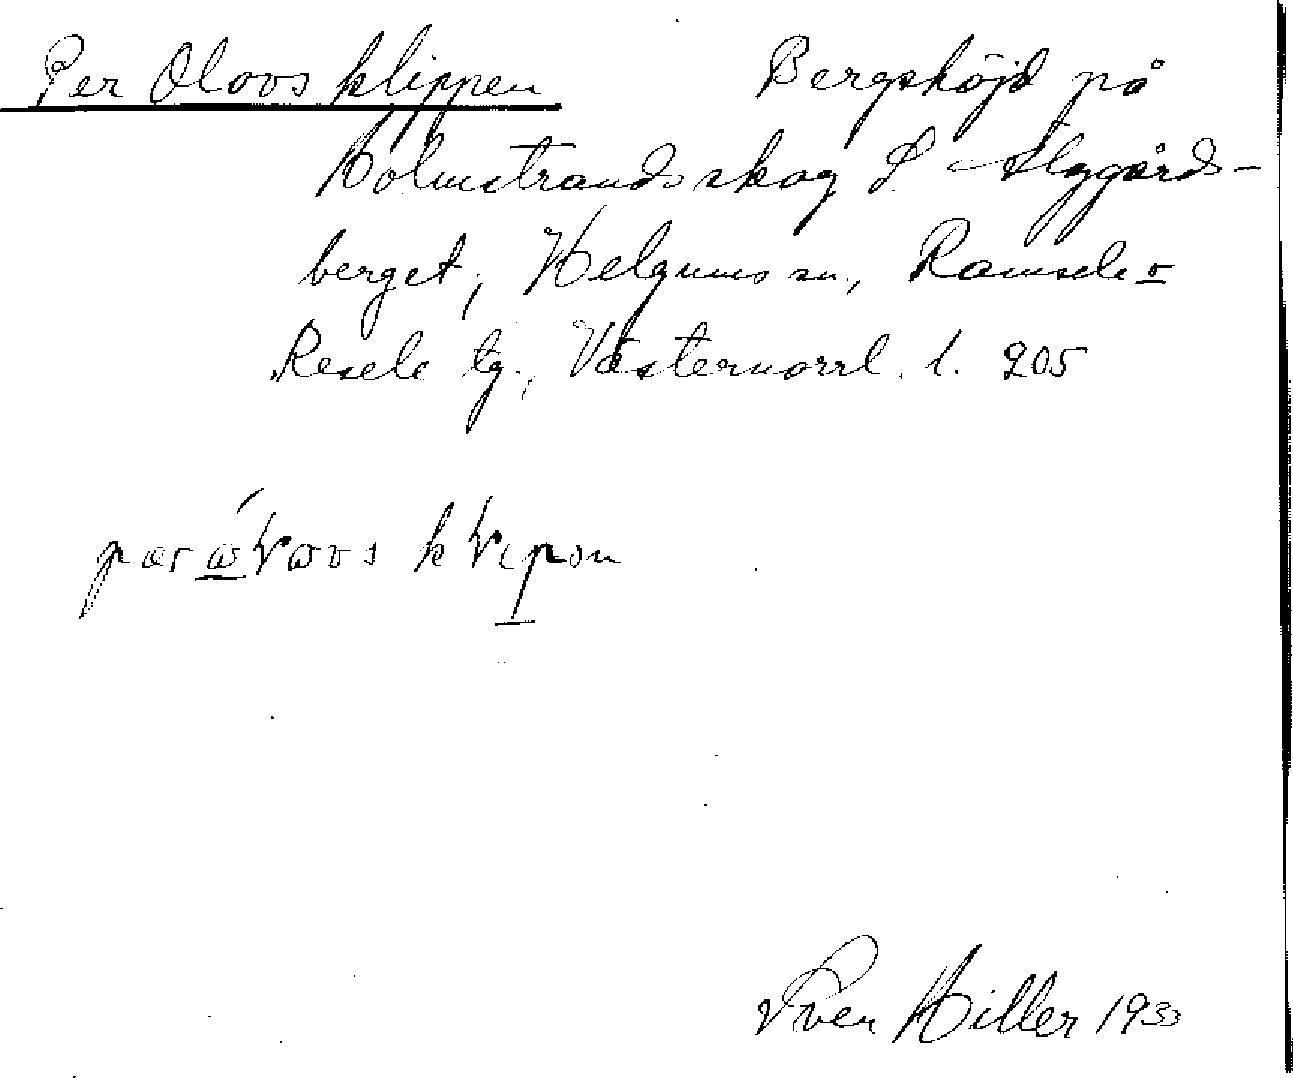 Per Olovs klippen Bergshöjd på
Holmstrandsskog S Älggårds-
berget, Helgums sn, Ramsele o
Resele tg., Västernorrl. l. 205
Sven Hiller